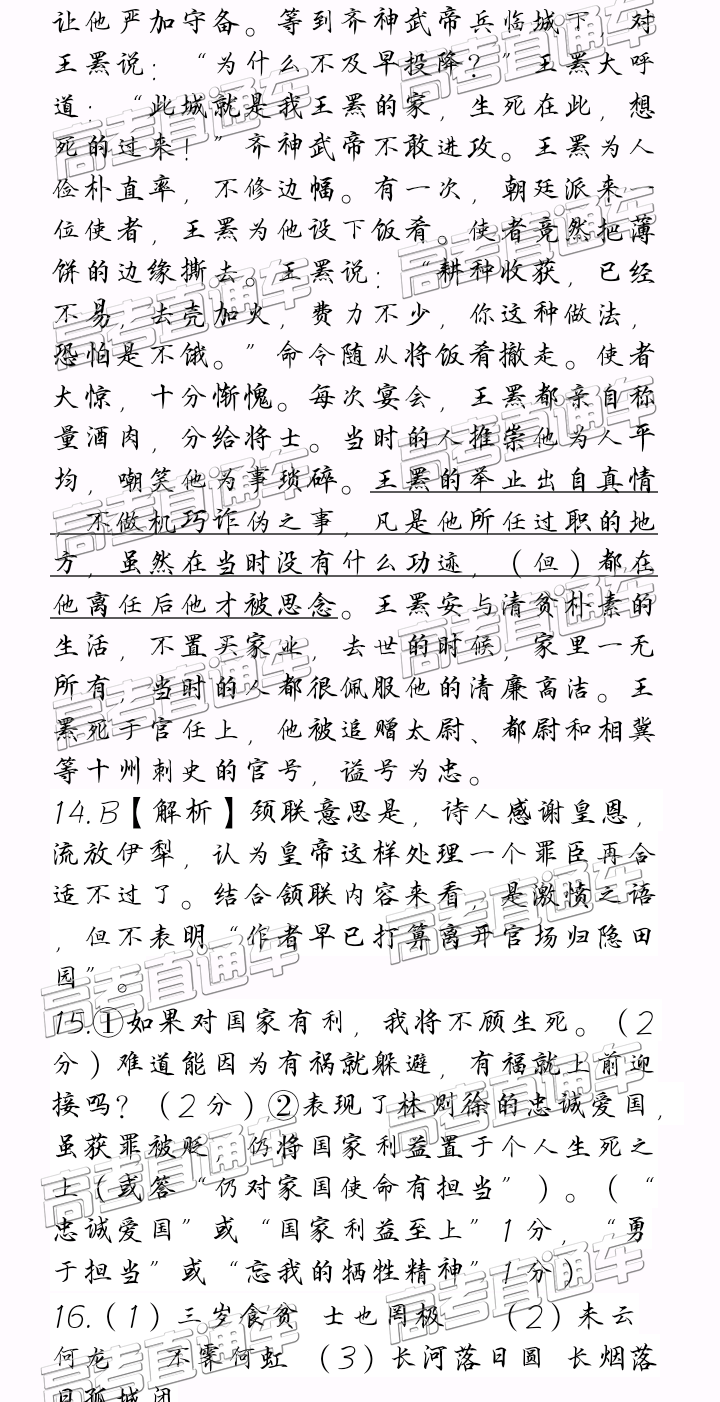 让他严加守备。等到齐神武帝兵临城下，对
王罴说：“为什么不及早投降？”王罴大呼
道：“此城就是我王罴的家，生死在此，想
死的过来！”齐神武帝不敢进攻。王罴为人
俭朴直率，不修边幅。有一次，朝廷派来一
位使者，王罴为他设下饭肴。使者竟然把薄
饼的边缘撕去。王罴说：“耕种收获，已经
不易，去壳加火，费力不少，你这种做法，
恐怕是不饿。”命令随从将饭肴撤走。使者
大惊，十分惭愧。每次宴会，王罴都亲自称
量酒肉，分给将士。当时的人推崇他为人平
均，嘲笑他为事琐碎。王罴的举止出自真情
，不做机巧诈伪之事，凡是他所任过职的地
方，虽然在当时没有什么功迹，（但）都在
他离任后他才被思念。王罴安与清贫朴素的
生活，不置买家业，去世的时候，家里一无
所有，当时的人都很佩服他的清廉高洁。王
罴死于官任上，他被追赠太尉、都尉和相冀
等十州刺史的官号，谥号为忠。
14.B【解析】颈联意思是，诗人感谢皇恩，
流放伊犁，认为皇帝这样处理一个罪臣再合
适不过了。结合颔联内容来看，是激愤之语
，但不表明“作者早已打算离开官场归隐田
园”。
15.①如果对国家有利，我将不顾生死。（2
分）难道能因为有祸就躲避，有福就上前迎
接吗？（2分）②表现了林则徐的忠诚爱国，
虽获罪被贬，仍将国家利益置于个人生死之
上（或答“仍对家国使命有担当”）。（“
忠诚爱国”或“国家利益至上”1分，“勇
于担当”或“忘我的牺牲精神”1分）
16.（1）三岁食贫 士也罔极 （2）未云
何龙 不霁何虹 （3）长河落日圆 长烟落
日孤城闭
高考直通车